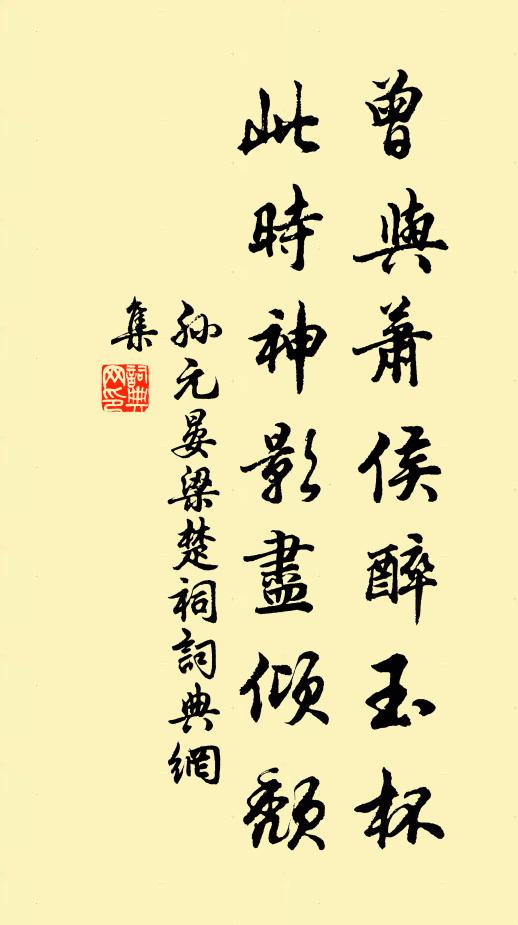 曾與蕭侯醉玉杯
此時神影盡傾頹
孫元晏梁楚祠詞典網
集
詞典
网印